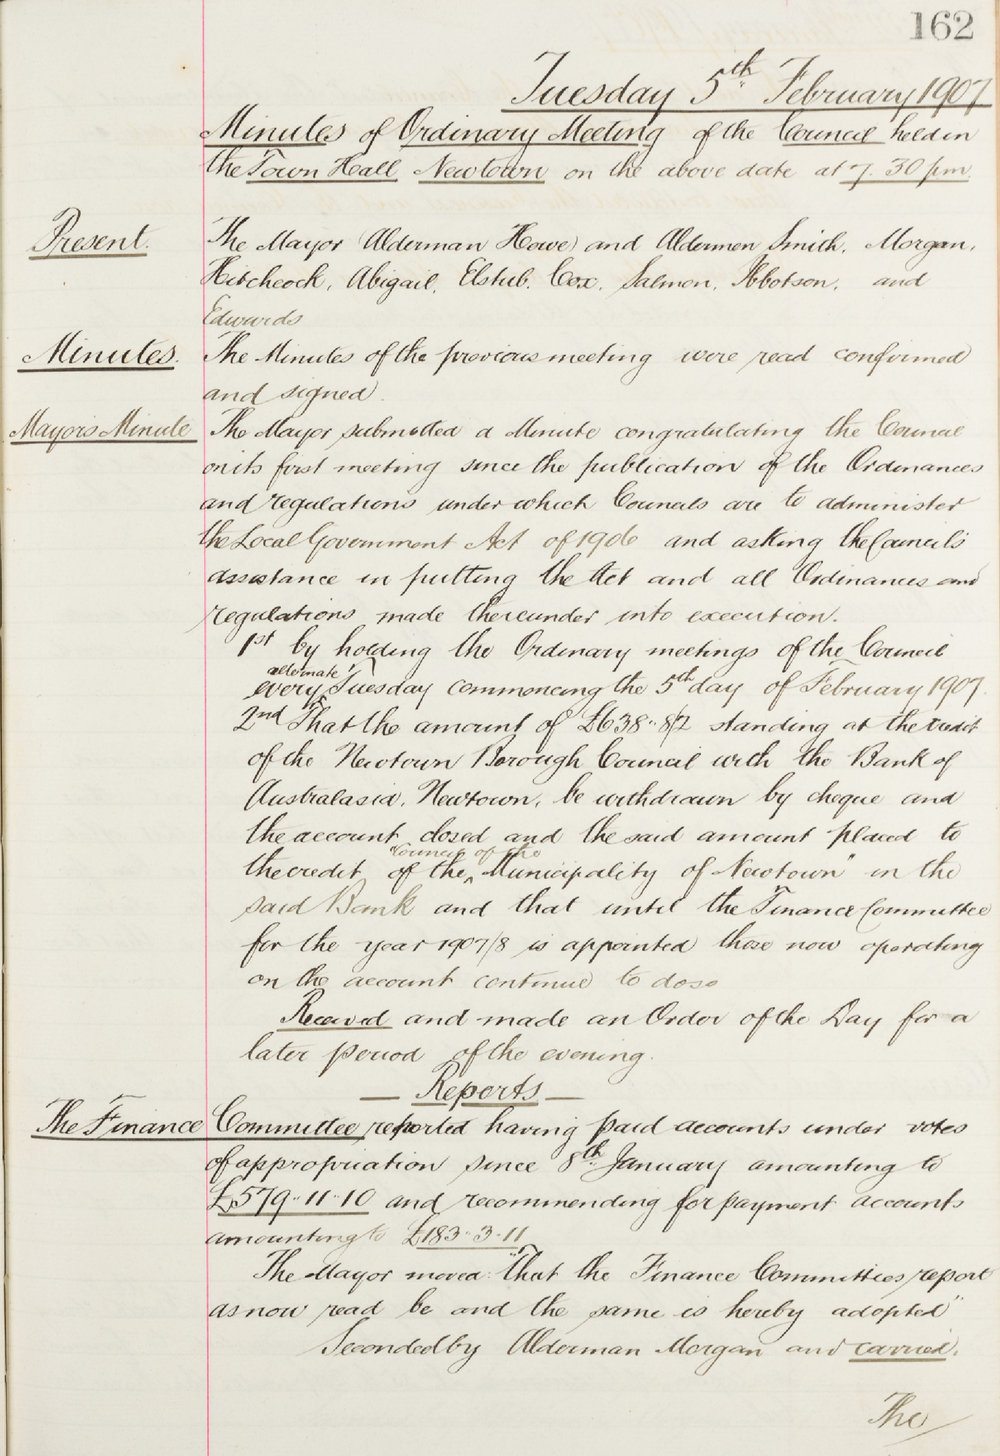 162
Tuesday 5th February 1907
Minutes of Ordinary Meeting of the Council held in
the Town Hall Newtown on the above date at 7.30 pm.
Present. The Mayor (Alderman Howe) and Aldermen Smith, Morgan,
Hitchcock, Abigail, Elstub, Cox, Salmon, Ibbotson, and
Edwards
Minutes. The Minutes of the previous meeting were read confirmed
and signed.
Mayors Minute The Mayor submitted a Minute congratulating the Council
on its first meeting since the publication of the Ordinances
and regulations under which Councils are to administer
the Local Government Act of 1906 and asking the Council's
assistance in putting the Act and all Ordinances and
regulations made thereunder into execution.
1st by holding the Ordinary meetings of the Council
alternate
every Tuesday commencing the 5th day of February 1907.
2nd That the amount of £638..8/2 standing at the credit
of the Newtown Borough Council with the Bank of
Australasia, Newtown, be withdrawn by cheque and
the account closed and the said amount placed to
"Council of the
the credit of the Municipality of Newtown" in the
said Bank and that until the Finance Committee
for the year 1907/8 is appointed those now operating
on the account continue to do so
Received and made an Order of the Day for a
later period of the evening.
Reports
The Finance Committee reported having paid accounts under votes
of appropriation since 8th January amounting to
£579..11..10 and recommending for payment accounts
amounting to £183.3.11
The Mayor moved "That the Finance Committees report
as now read be and the same is hereby adopted"
Seconded by Alderman Morgan and carried.
The